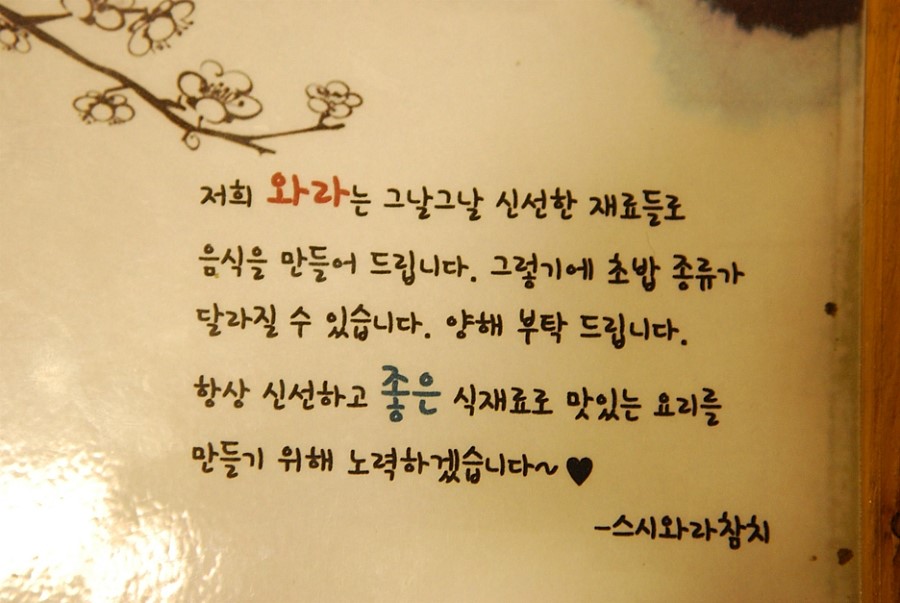 저희 와라는 그날그날 신선한 재료들로
음식을 만들어 드립니다. 그렇기에 초밥 종류가
달라질 수 있습니다. 양해 부탁 드립니다.
항상 신선하고 좋은 식재료로 맛있는 요리를
만들기 위해 노력하겠습니다~♥
-스시와라참치